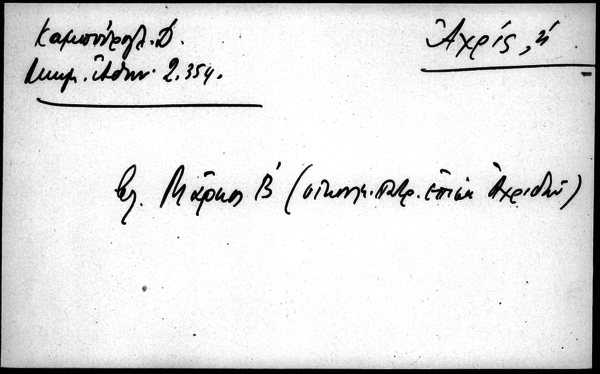 Καμπούρογλ. Δ.
Μνημ. Ἀθην. 2.354.
Ἀχρίς, ἡ
Βλ. Μᾶρκος Β' (οἰκουμ. πατρ. Ἀχριδῶν)